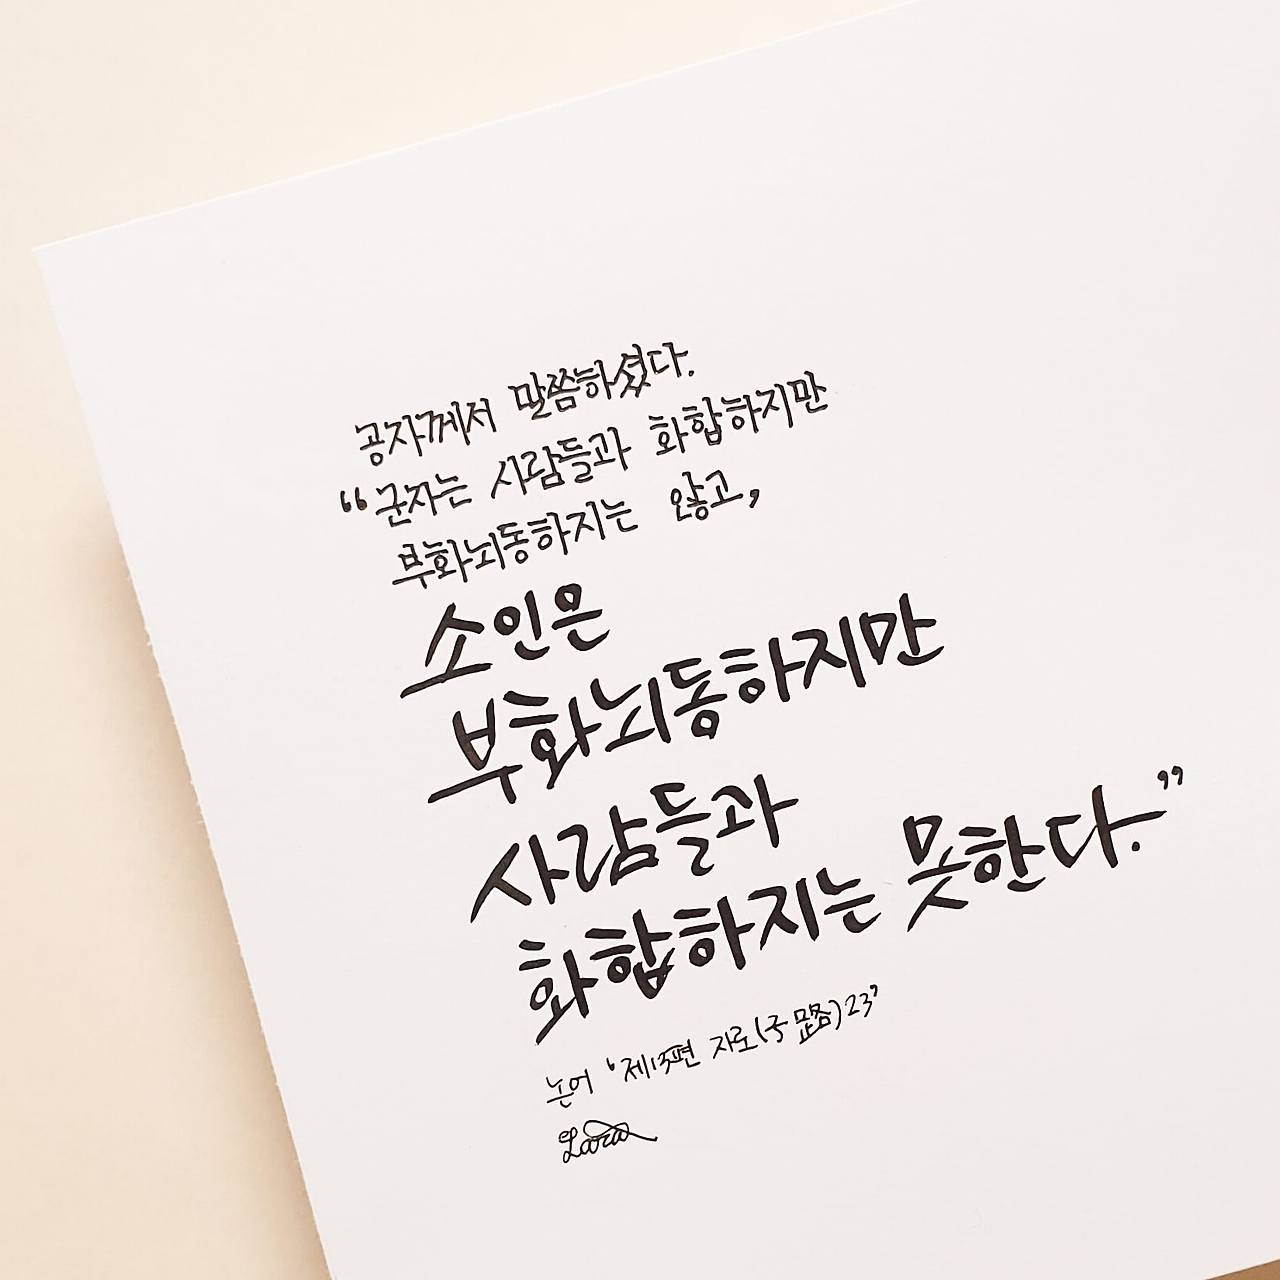 공자께서 말씀하셨다.
“군자는 사람들과 화합하지만
부화뇌동하지는 않고,
소인은
부화뇌동하지만
사람들과
화합하지는 못한다.”
논어 ‘제13편 자로(子路)23’
Lara